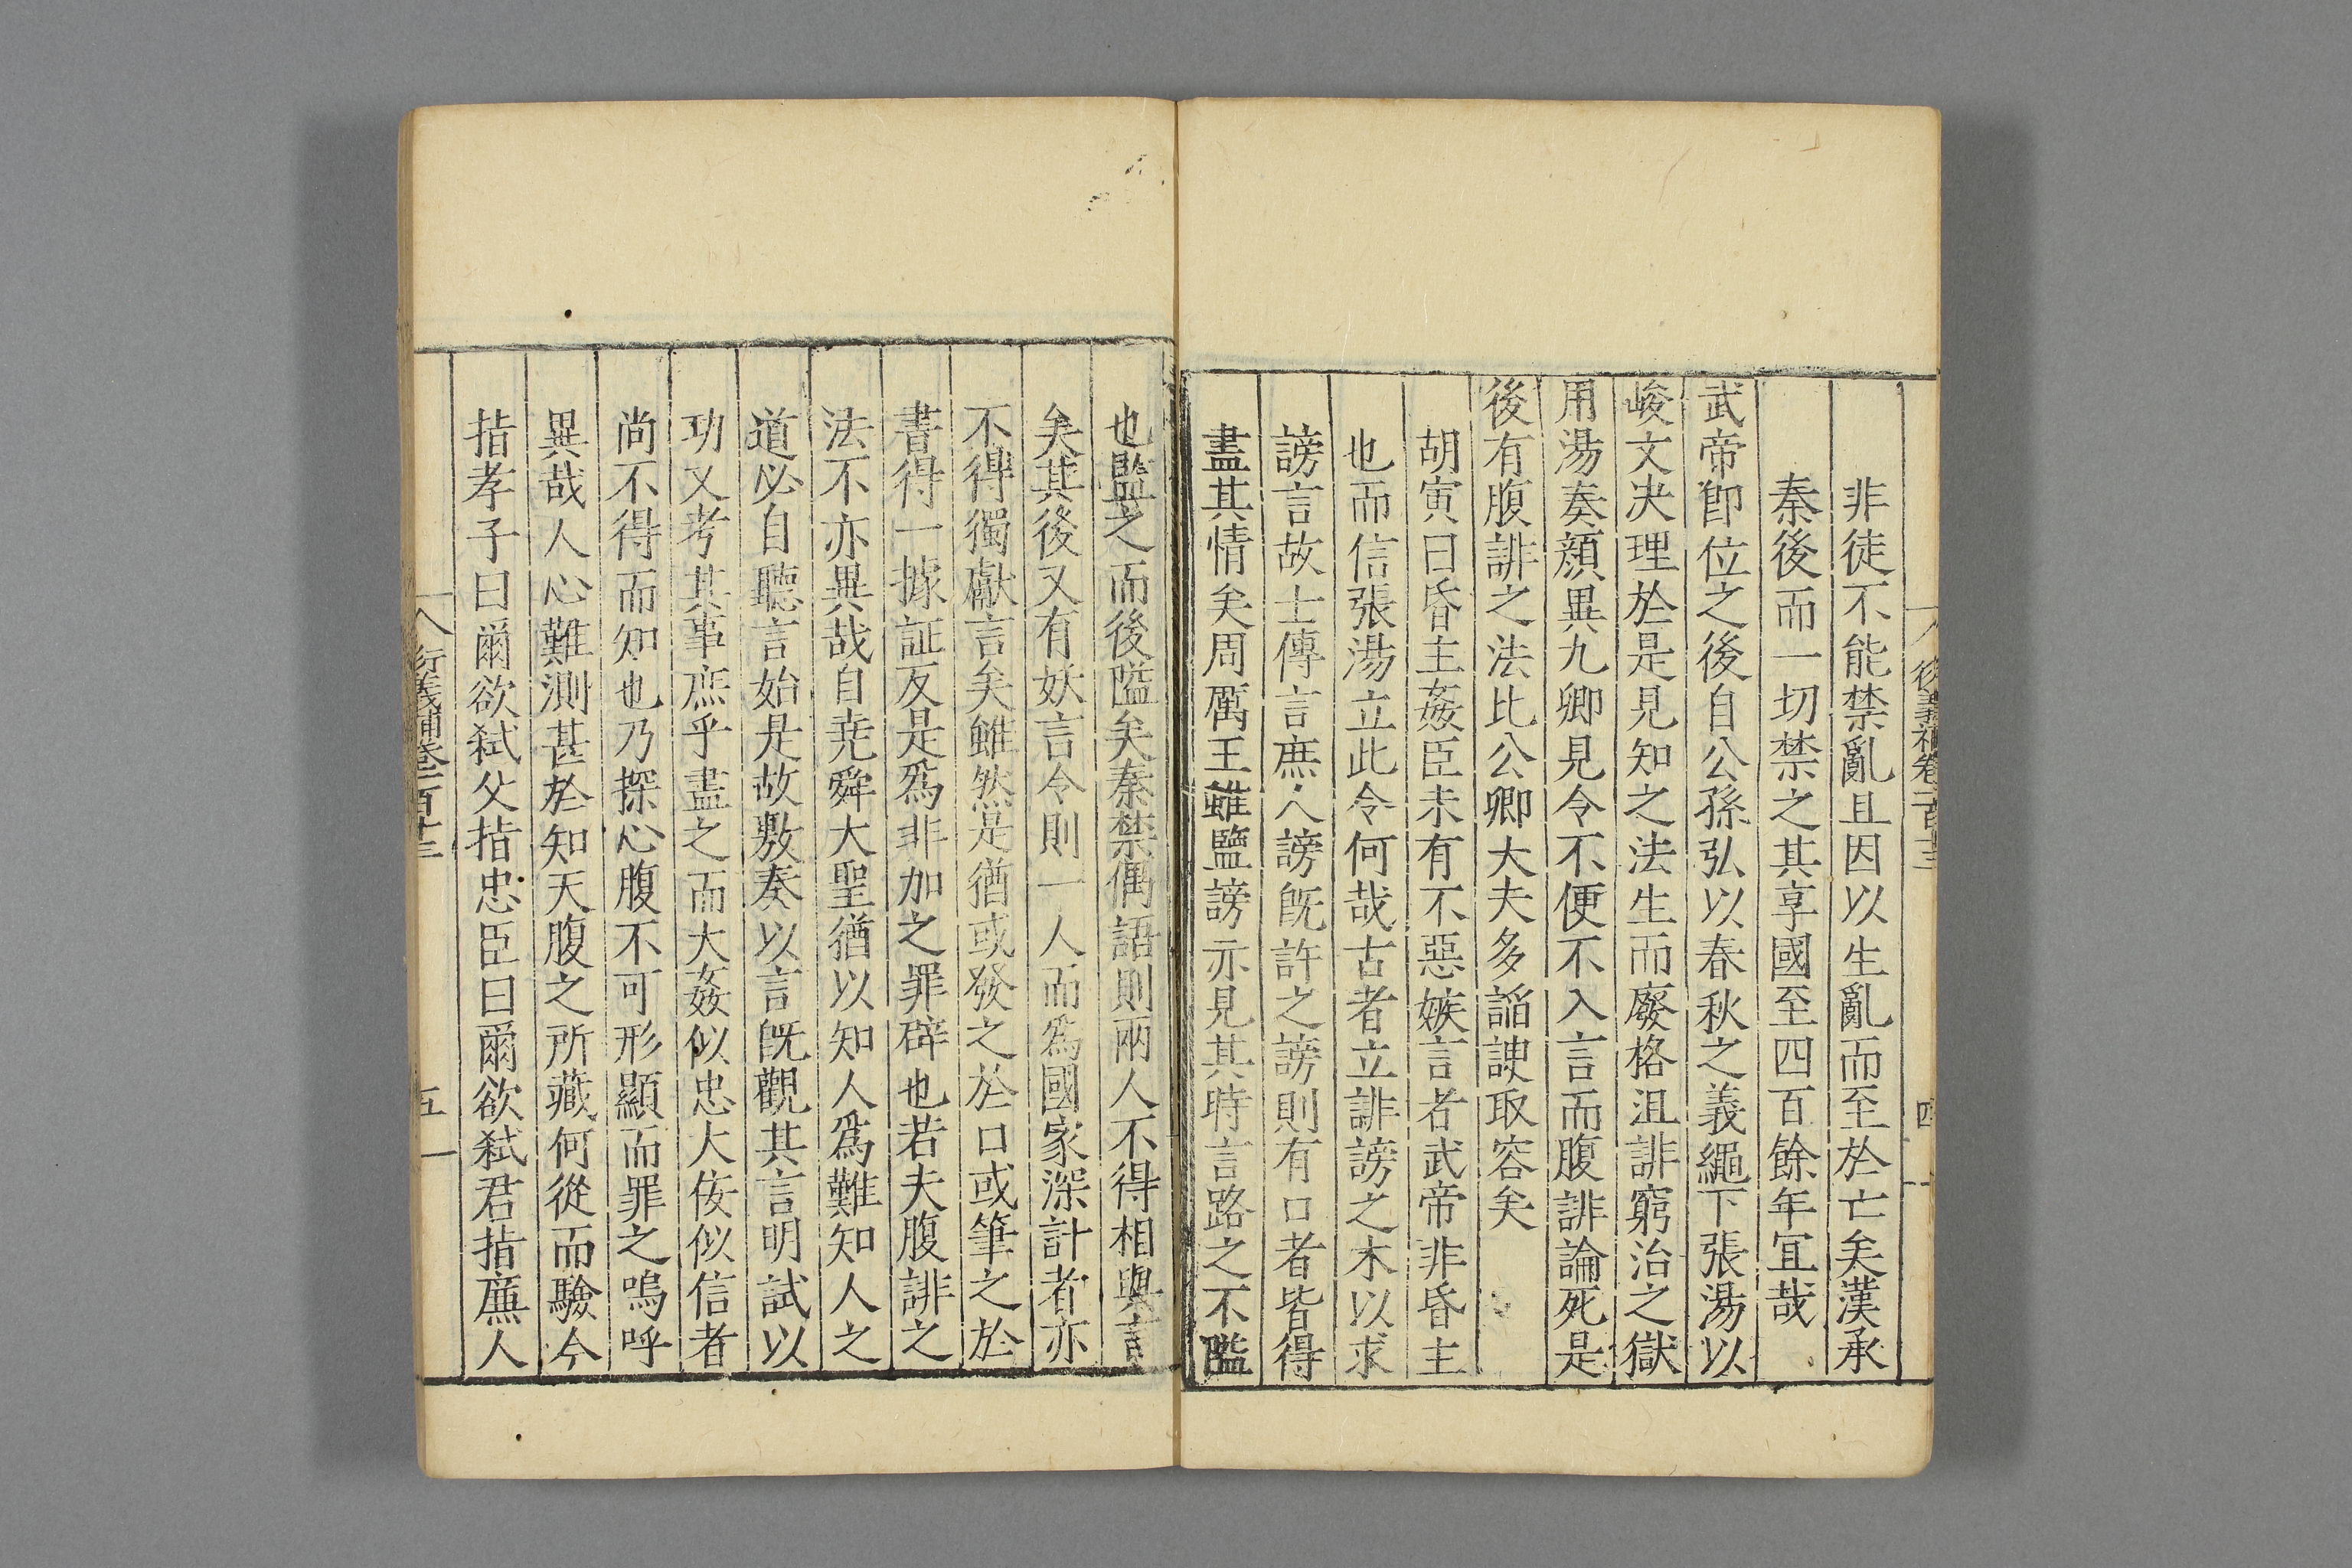 非徒不能禁亂且因以生亂而至於亡矣漢承
秦後而一切禁之其享國至四百餘年宜哉
武帝卽位之後自公孫弘以春秋之義繩下張湯以
峻文决理於是見知之法生而廢格沮誹窮治之獄
用湯奏顏異九卿見令不便不入言而腹誹論死是
後有腹誹之法比公卿大夫多諂諛取容矣
胡寅曰昏主姦臣未有不惡嫉言者武帝非昏主
也而信張湯立此令何哉古者立誹謗之木以求
謗言故士傳言庶人謗旣許之謗則有口者皆得
盡其情矣周厲王雖監謗亦見其時言路之不隘
也監之而後隘矣秦禁偶語則兩人不得相與言
矣其後又有妖言令則一人而爲國家深計者亦
不得獨獻言矣雖然是猶或發之於口或筆之於
書得一據証反是爲非加之罪辟也若夫腹誹之
法不亦異哉自堯舜大聖猶以知人爲難知人之
道必自聽言始是故敷奏以言旣觀其言明試以
功又考其事庶乎盡之而大姦似忠大佞似信者
尚不得而知也乃探心腹不可形顯而罪之嗚呼
異哉人心難測甚於知天腹之所藏何從而驗今
指孝子曰爾欲弑父指忠臣曰爾欲弑君指廉人
衍義補卷一百十三
五